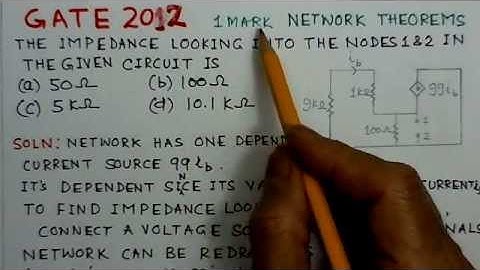 GATE 2012 1 MARK NETWORK THEOREMS
THE IMPEDANCE LOOKING INTO THE NODES 1&2 IN
THE GIVEN CIRCUIT IS
(a) 50Ω (b) 100Ω
(c) 5KΩ (d) 10.1KΩ
i_b
1kΩ
99i_b
9kΩ
1
100Ω
2
SOLN: NETWORK HAS ONE DEPEND
CURRENT SOURCE 99i_b.
IT'S DEPENDENT SINCE ITS VA CURRENT i
TO FIND IMPEDANCE LOO
CONNECT A VOLTAGE SO NALS
NETWORK CAN BE REDRA